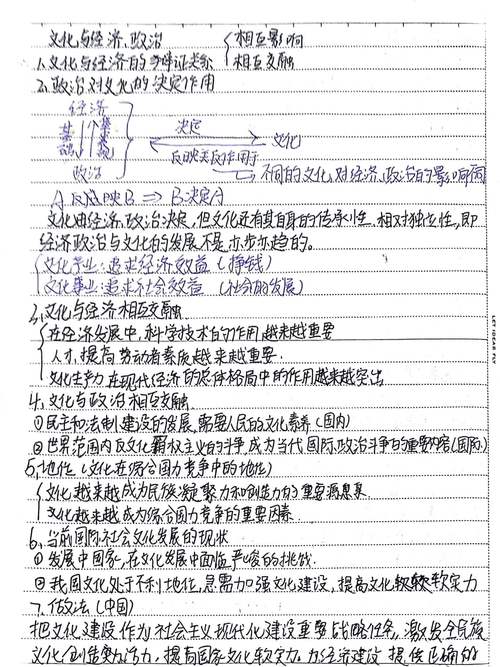 文化与经济、政治 { 相互影响
1.文化与经济的辩证关系 相互交融
2.政治对文化的决定作用
经济
基础 集中表现 决定 文化
反映及反作用于
政治 不同的文化,对经济、政治的影响不同
A反映B ⇒ B决定A
文化由经济、政治决定,但文化还有其自身的传承性、相对独立性,即
经济政治与文化的发展不是亦步亦趋的。
文化产业:追求经济效益(挣钱)
文化事业:追求社会效益(社会的发展)
3.文化与经济相互交融
在经济发展中,科学技术的作用越来越重要
人才,提高劳动者素质越来越重要.
文化生产力在现代经济的总体格局中的作用越来越突出
4.文化与政治相互交融
①民主和法制建设的发展,需要人民的文化素养(国内)
②世界范围内反文化霸权主义的斗争,成为当代国际政治斗争的重要内容(国际)
5.地位(文化在综合国力竞争中的地位)
文化越来越成为民族凝聚力和创造力的重要源泉
文化越来越成为综合国力竞争的重要因素.
6.当前国际社会文化发展的现状
①发展中国家,在文化发展中面临严峻的挑战
②我国文化处于不利地位,急需加强文化建设,提高文化软实力
7.做法(中国)
把文化建设作为社会主义现代化建设重要战略任务,激发全民族
文化创造力活力,提高国家文化软实力.为经济建设提供正确的